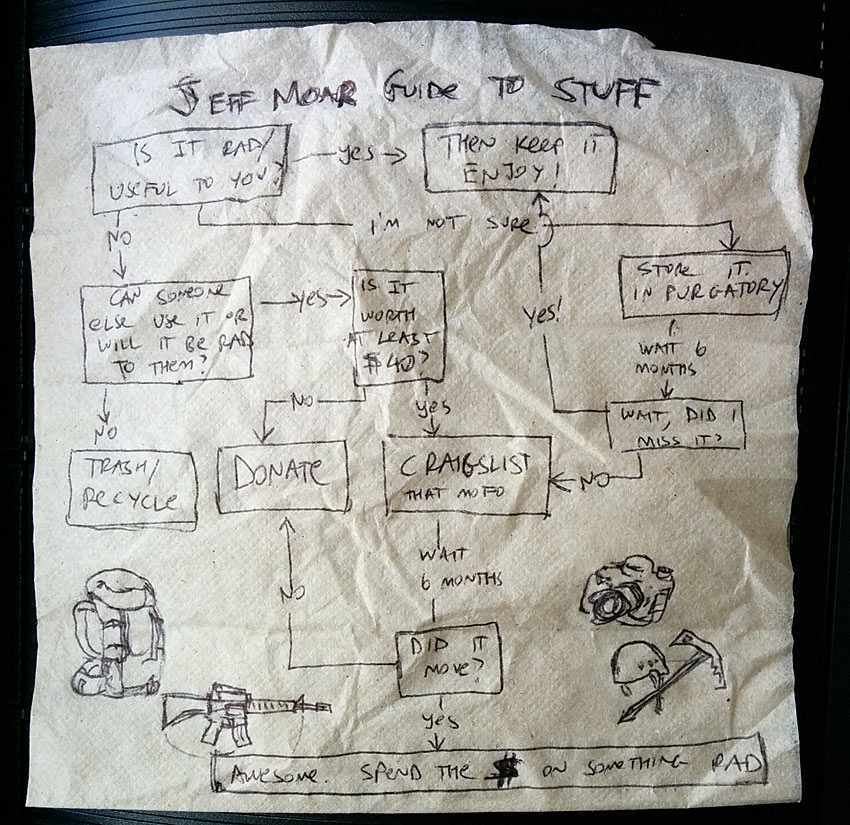 JEFF MOAR GUIDE TO STUFF
IS IT RAD/
USEFUL TO YOU?
YES
THEN KEEP IT
ENJOY!
I'M NOT SURE
NO
STORE IT
IN PURGATORY
CAN SOMEONE
ELSE USE IT OR
WILL IT BE RAD
TO THEM?
YES
IS IT
WORTH
AT LEAST
$40?
YES!
WAIT 6
MONTHS
NO
YES
NO
WAIT, DID I
MISS IT?
TRASH/
RECYCLE
DONATE
CRAIGSLIST
THAT MOFO
NO
WAIT
6 MONTHS
NO
DID IT
MOVE?
YES
AWESOME. SPEND THE $ ON SOMETHING RAD